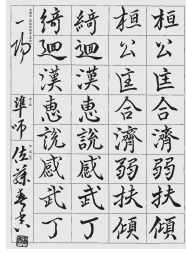 桓公匡合濟弱扶傾
桓公匡合濟弱扶傾
綺迴漢惠說感武丁
綺迴漢惠說感武丁
準師 佐藤